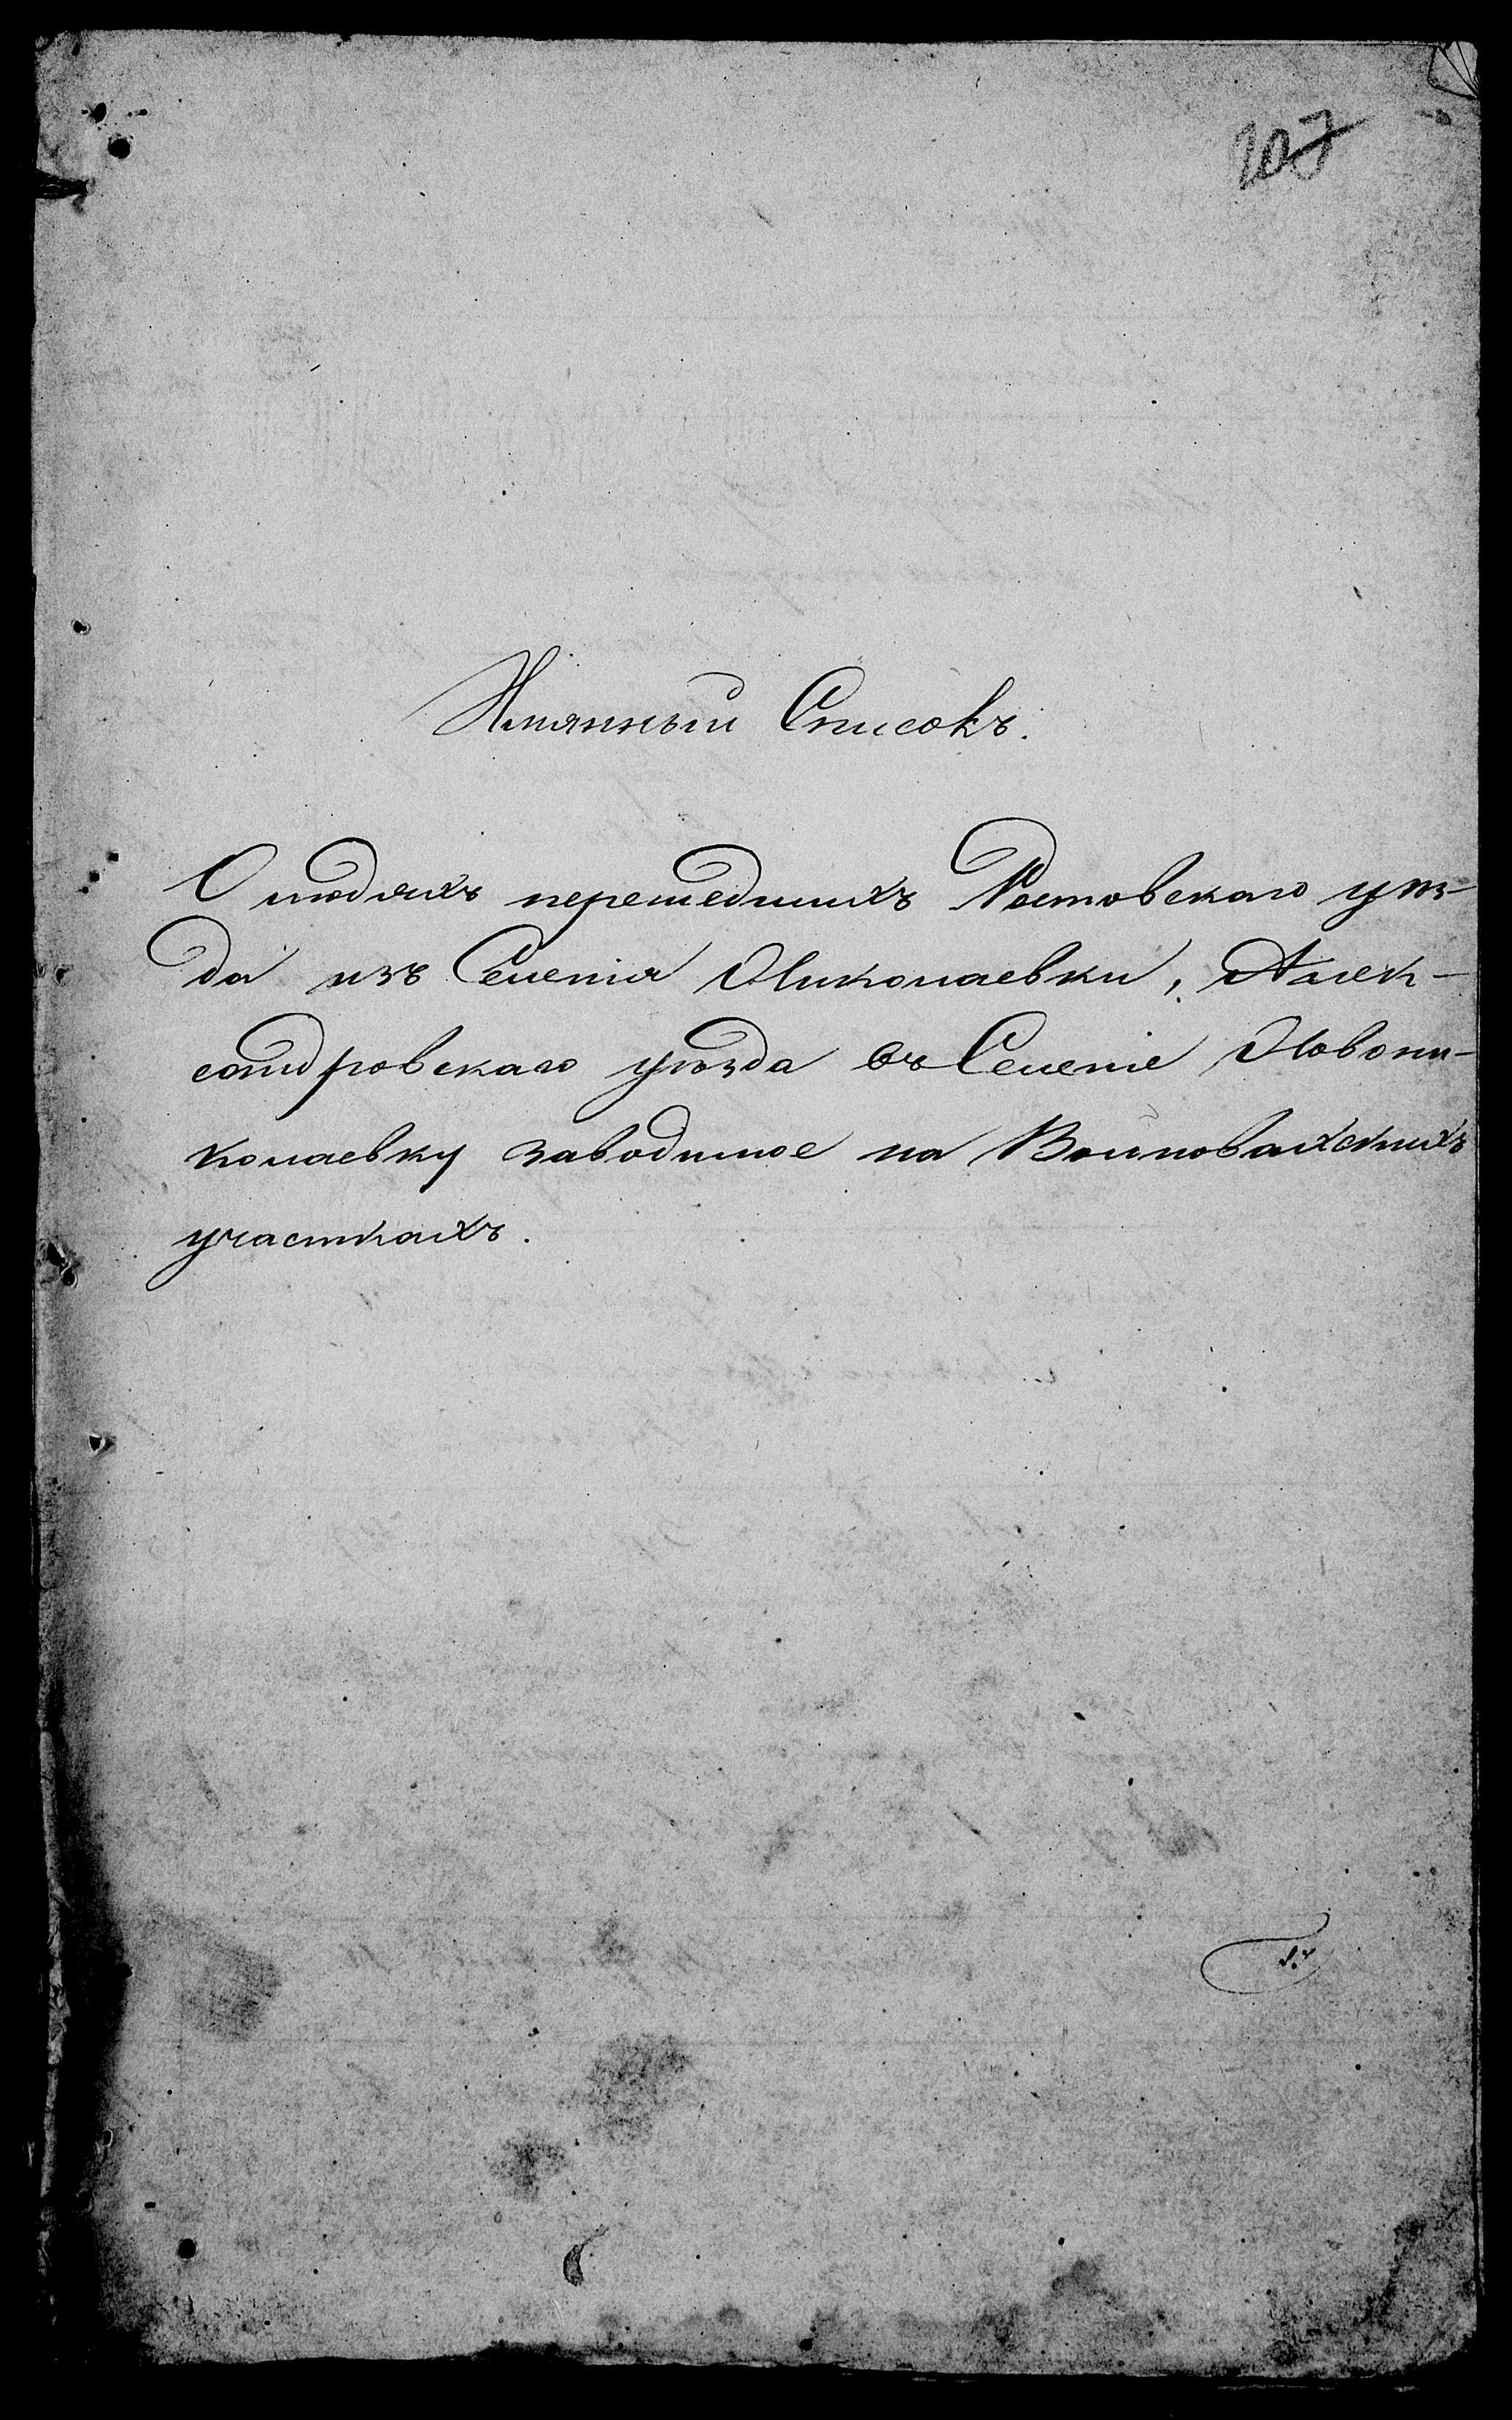 207
Имянный Списокъ.
О людяхъ перешедшихъ Ростовскаго уѣз-
да изъ Селенія Николаевки, Алек-
сандровскаго уѣзда въ Селеніе Новони-
колаевку заводимое на Войновахскихъ
участкахъ.